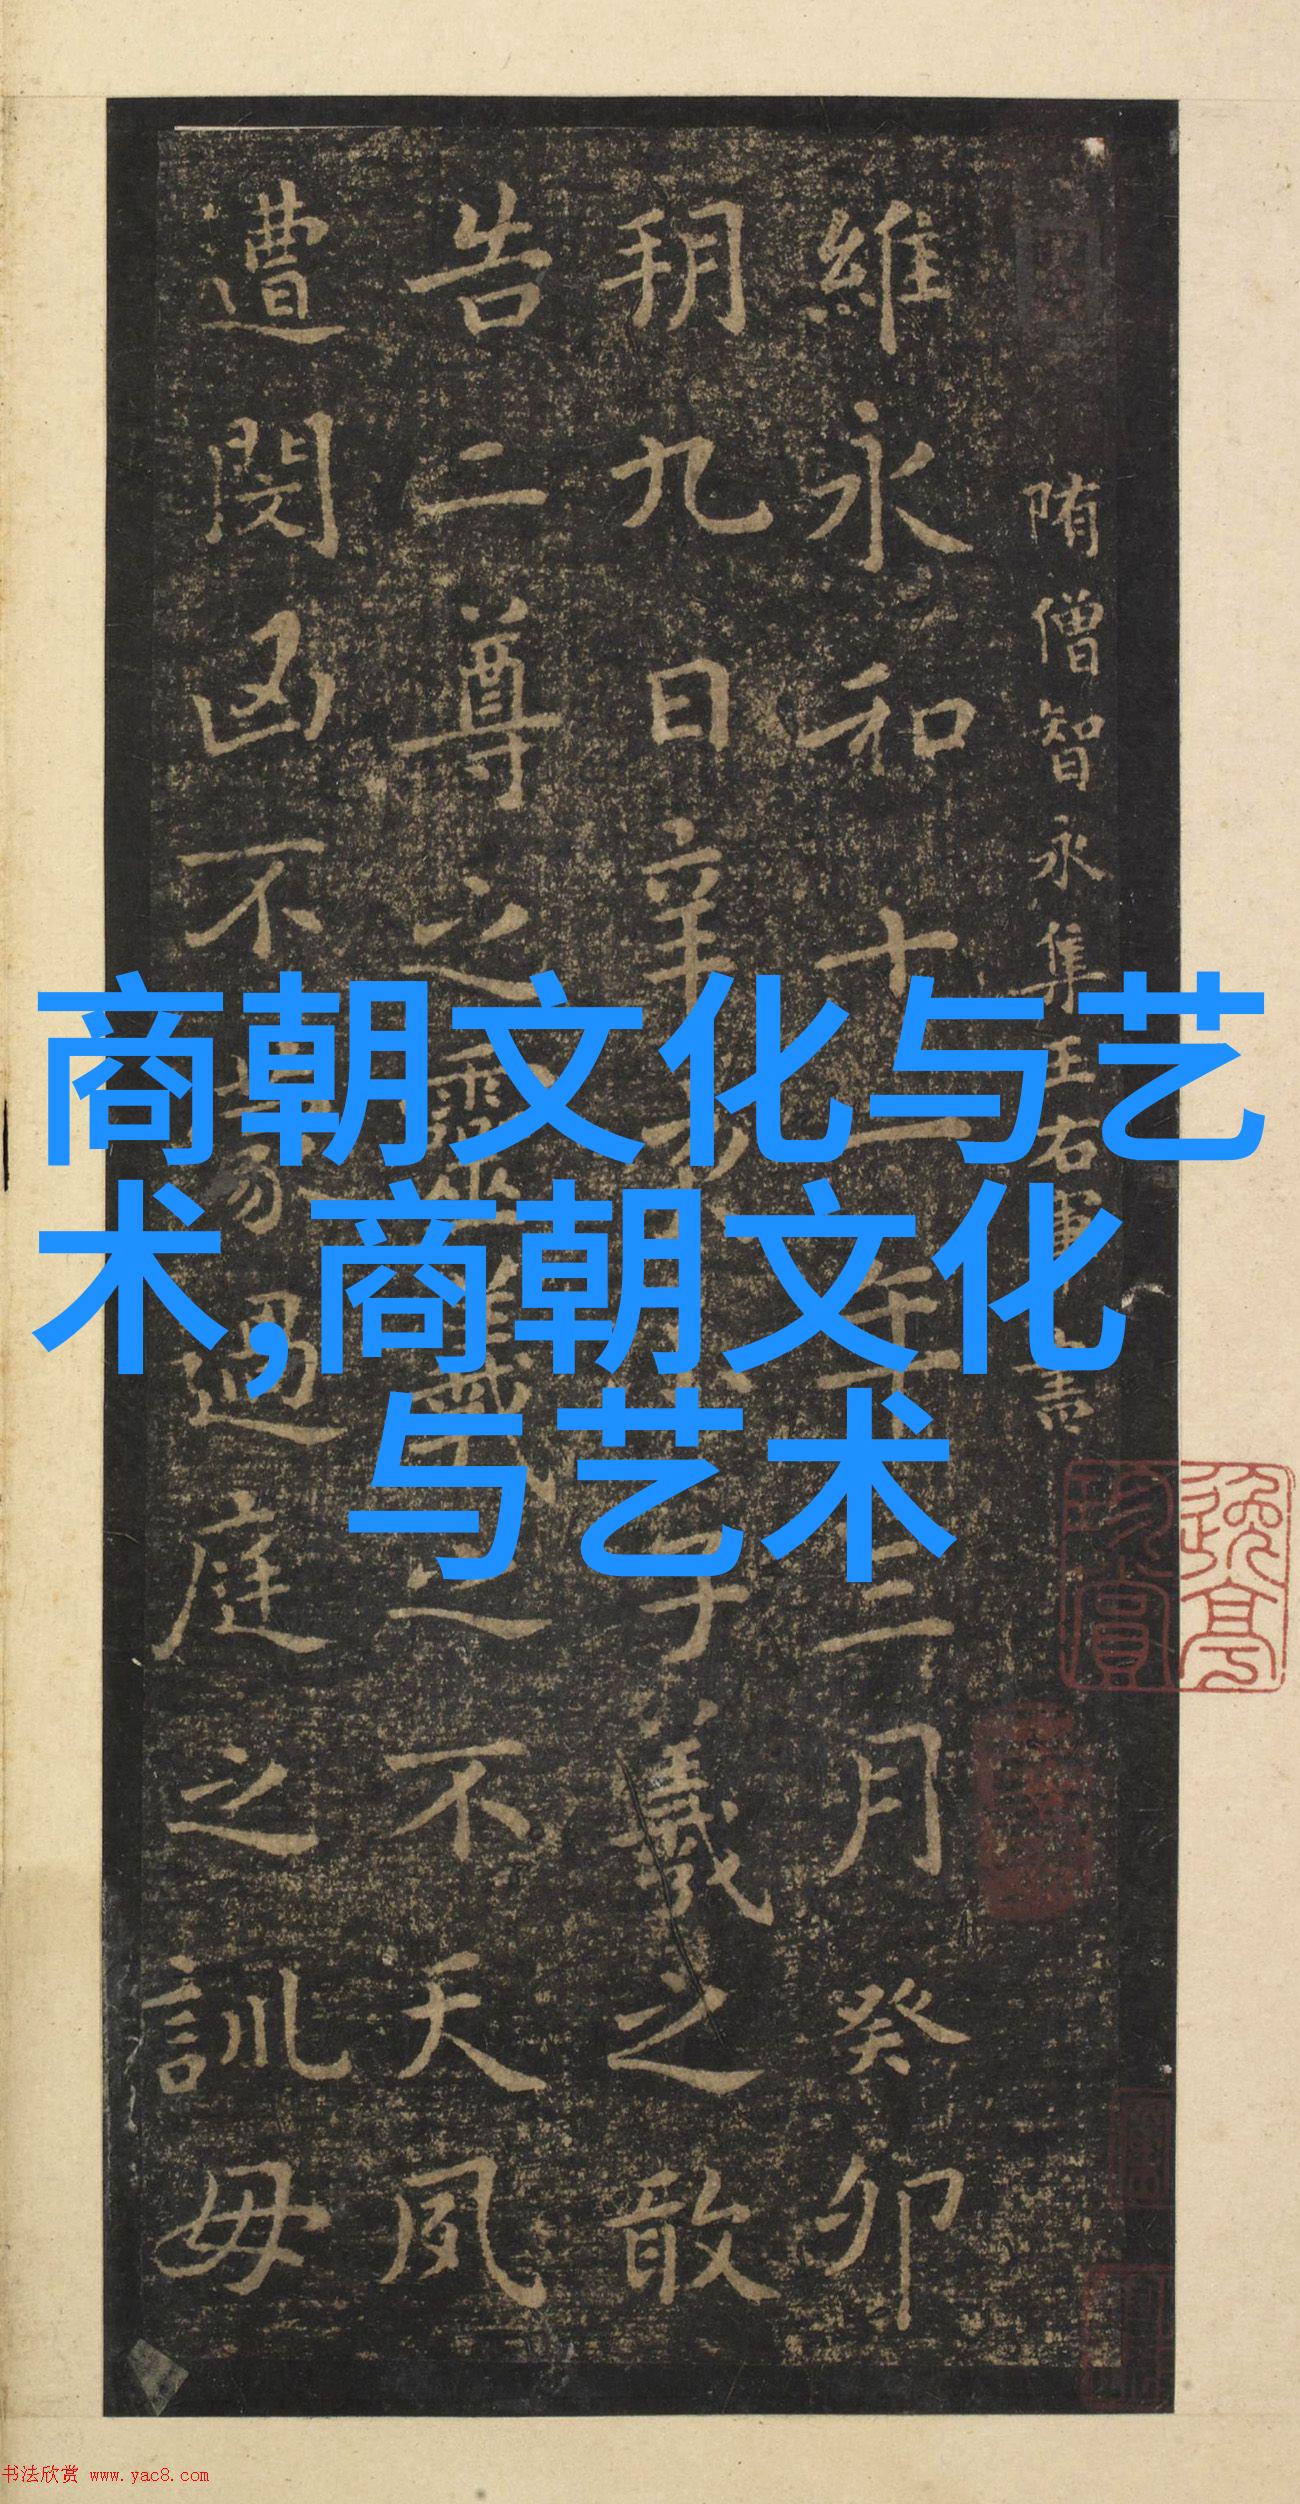 隋僧智永集王右軍書
維永和十一年三月癸卯
朔九日辛亥小子羲之敢
告二尊之靈羲之不天夙
遭閔凶不蒙過庭之訓毋
商朝文化与艺
术,商朝文化
与艺术
书法欣赏 www.yac8.com